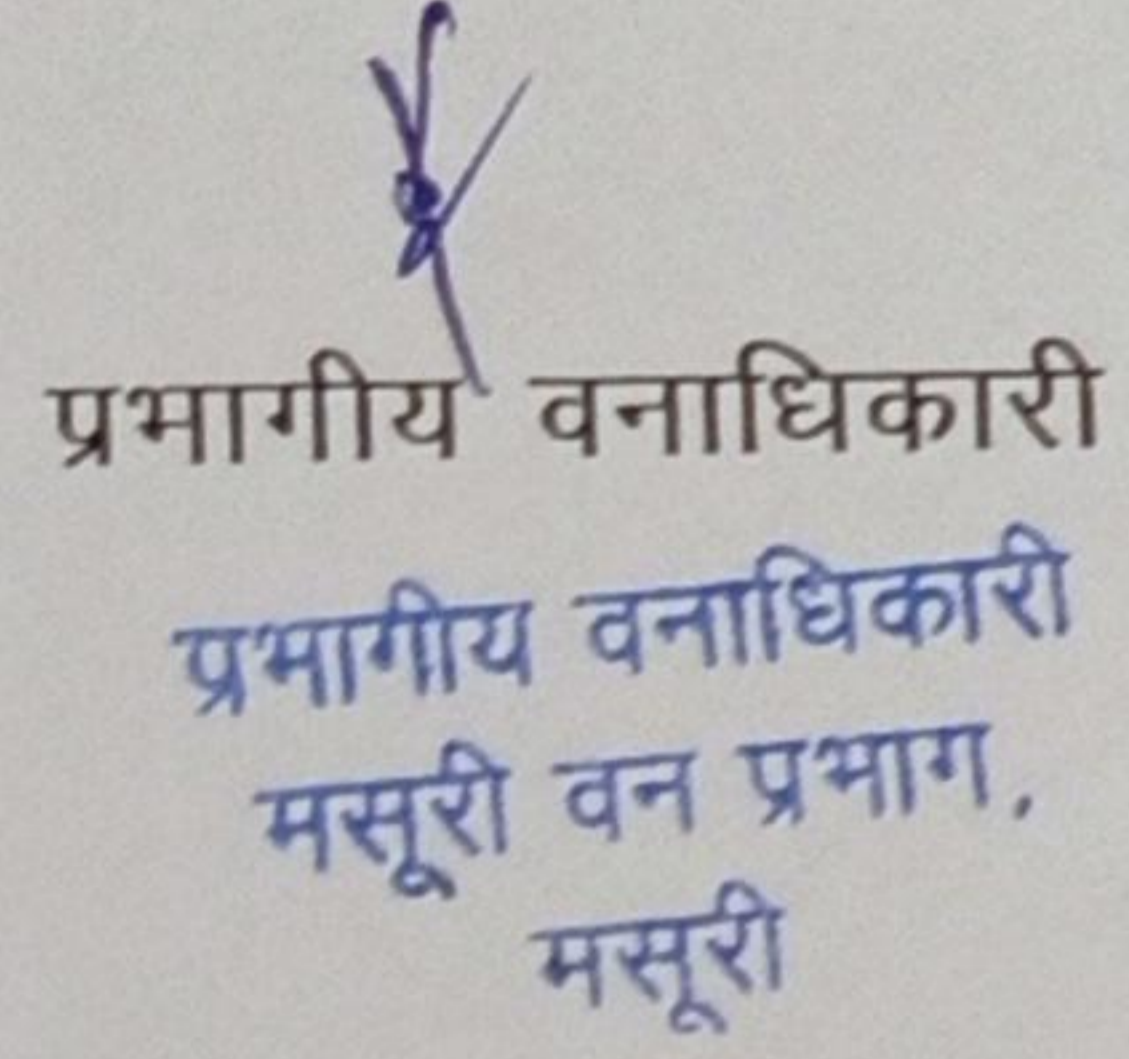 प्रभागीय वनाधिकारी
प्रभागीय वनाधिकारी
मसूरी वन प्रभाग,
मसूरी